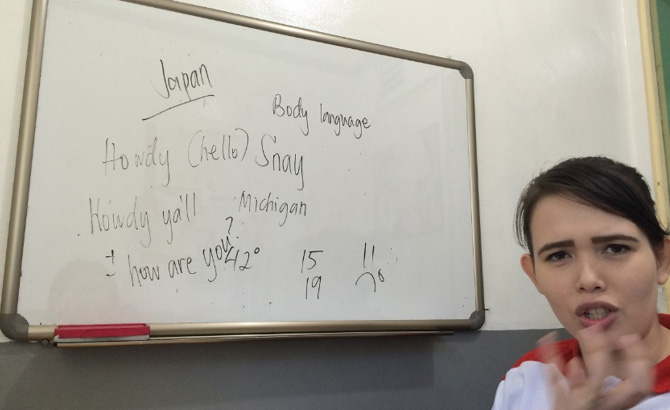 Japan
Body language
Howdy (hello) S'nay
Howdy ya'll Michigan
how are you? 42°
15 11
19